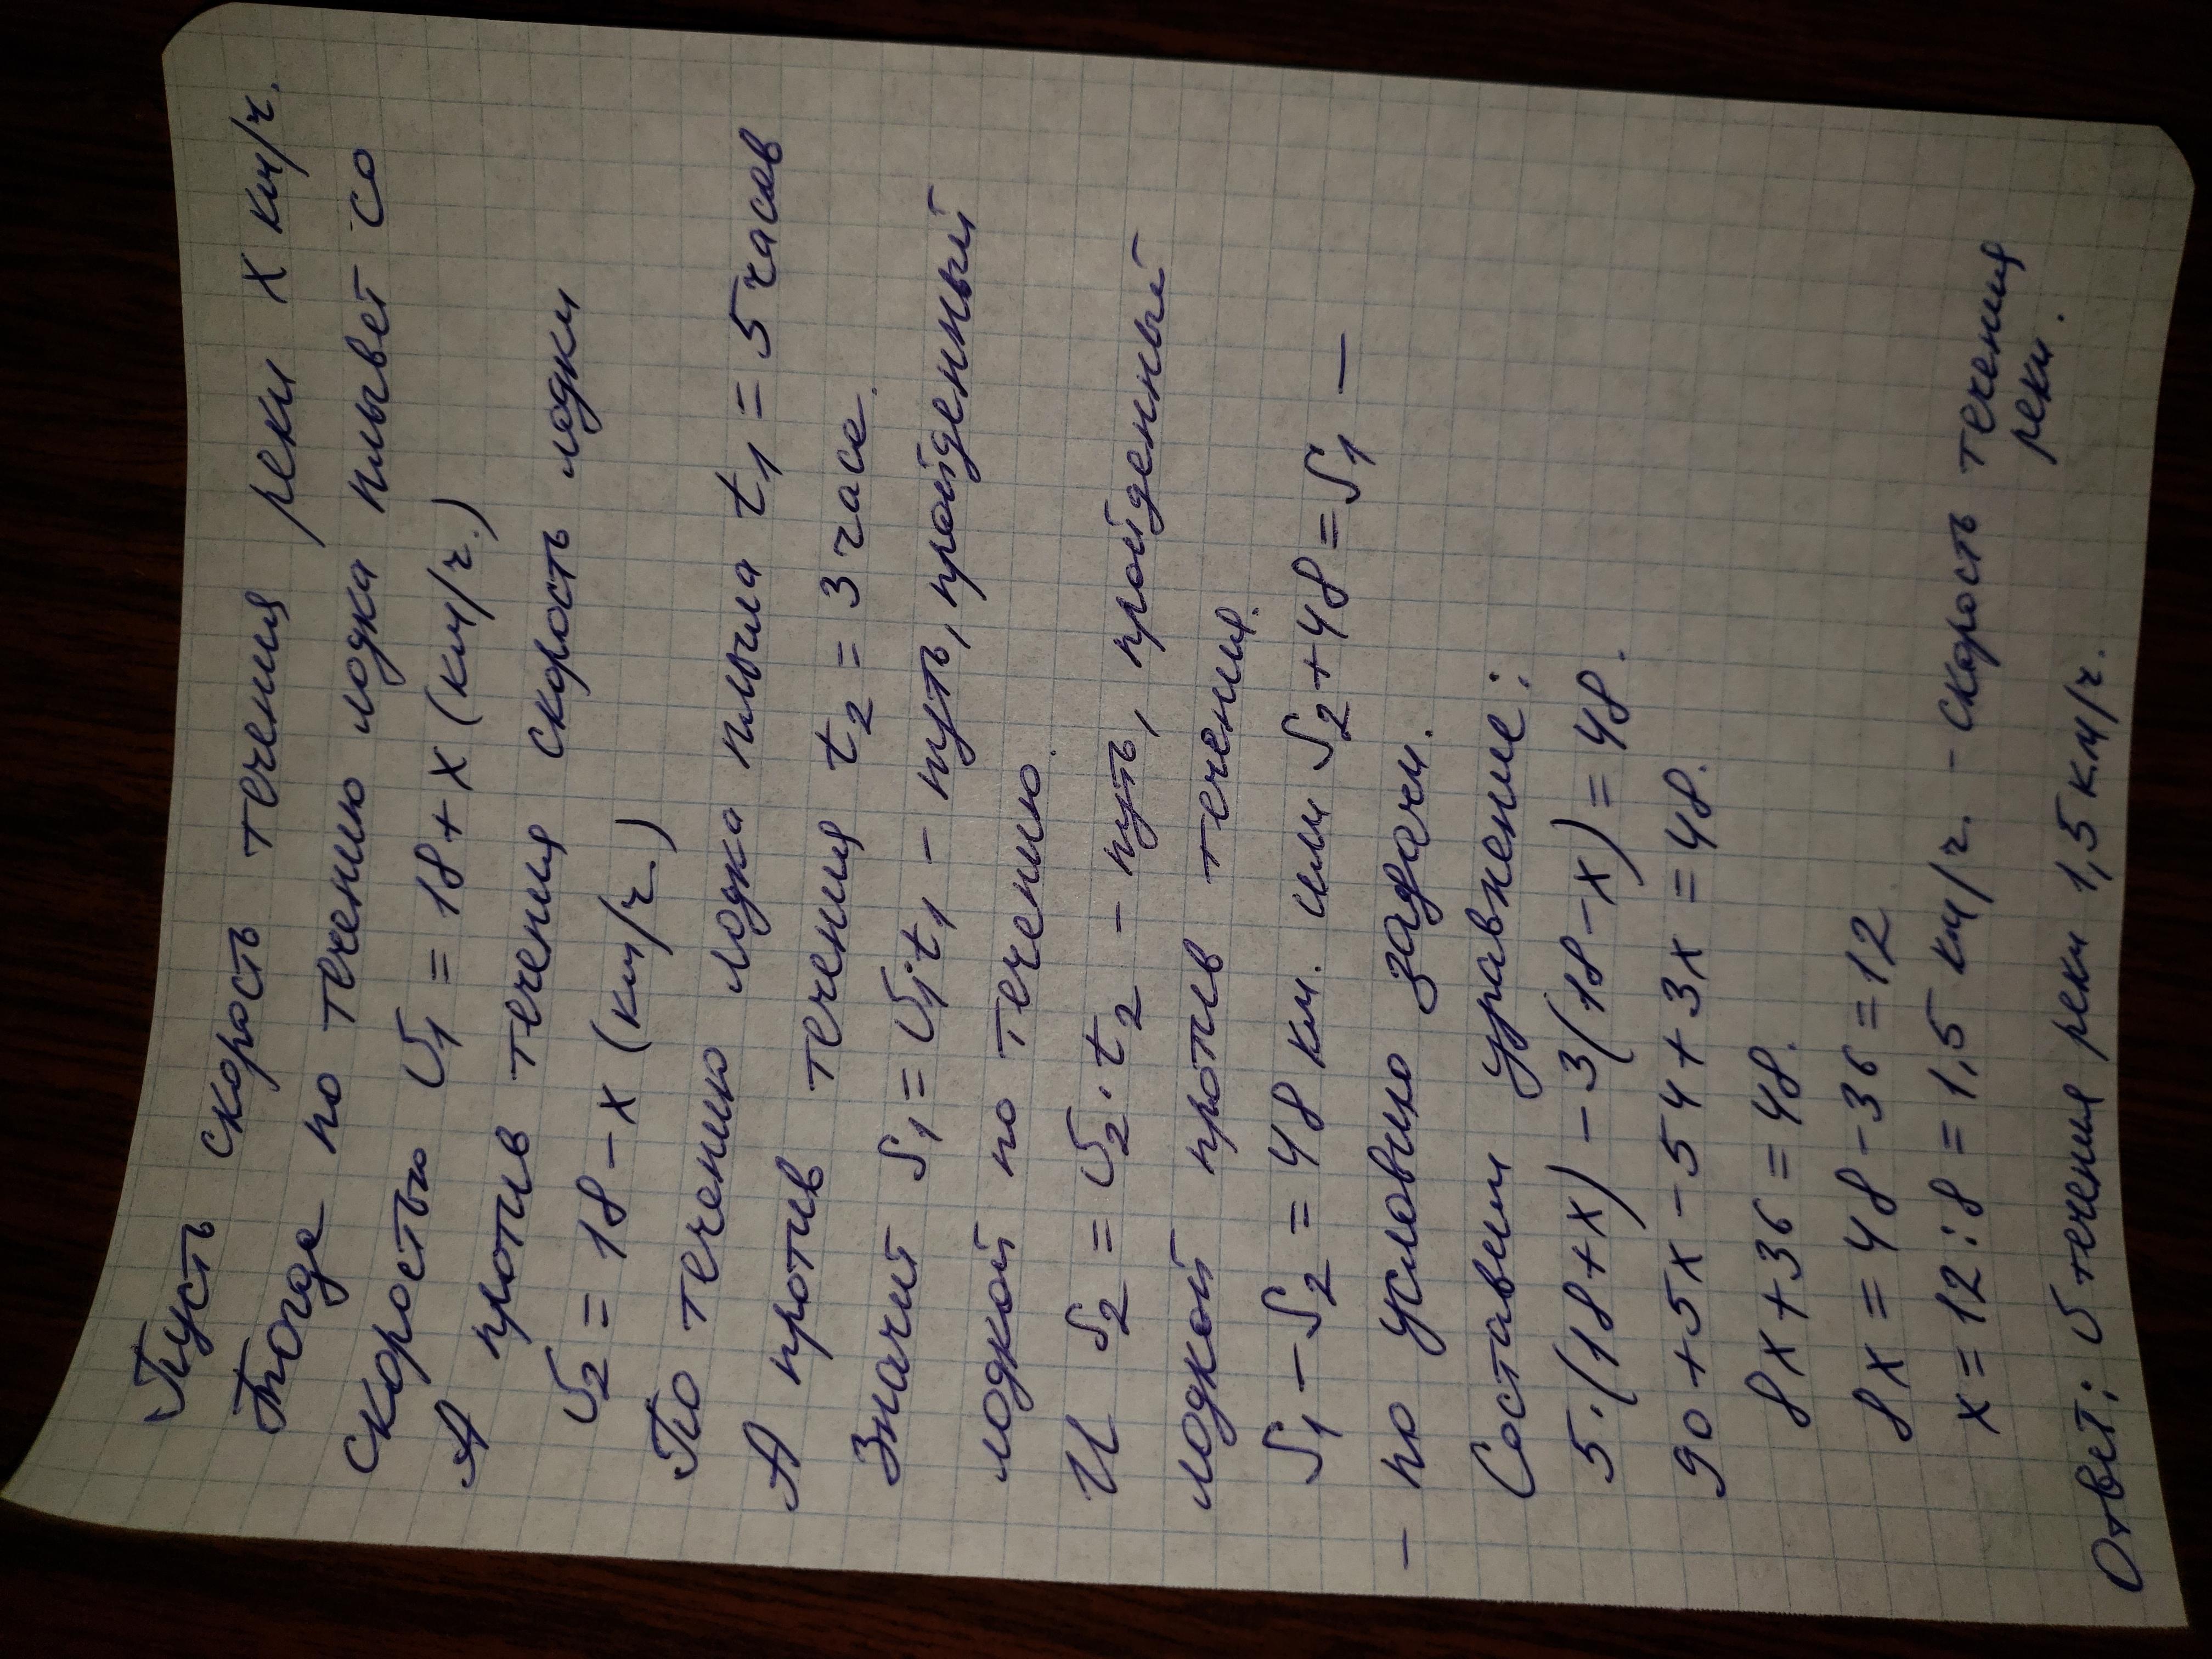 Пусть скорость течения реки x км/ч.
Тогда по течению лодка плывет со
скоростью υ₁ = 18+x (км/ч.)
А против течения скорость лодки
υ₂ = 18-x (км/ч.)
По течению лодка плыла t₁ = 5 часов
А против течения t₂ = 3 часа.
Значит S₁ = υ₁·t₁ - путь, пройденный
лодкой по течению.
И S₂ = υ₂·t₂ - путь, пройденный
лодкой против течения.
S₁ - S₂ = 48 км. или S₂+48 = S₁ —
- по условию задачи.
Составим уравнение:
5·(18+x) - 3(18-x) = 48.
90+5x-54+3x = 48.
8x+36 = 48.
8x = 48-36 = 12
x = 12:8 = 1,5 км/ч. - скорость течения
реки.
Ответ: υ течения реки 1,5 км/ч.